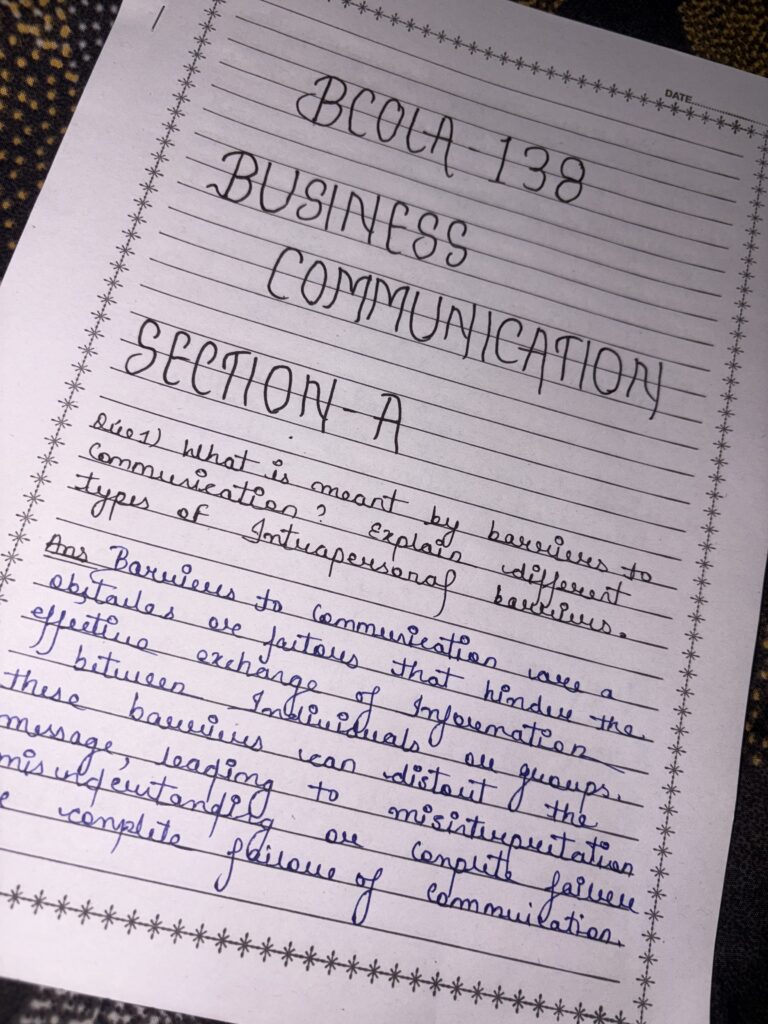 DATE
BCOLA-138
BUSINESS
COMMUNICATION
SECTION-A
Que1) What is meant by barriers to
communication? Explain different
types of Intrapersonal barriers.
Ans Barriers to communication are a
obstacles or factors that hinder the
effective exchange of Information
between Individuals or groups.
these barriers can distort the
message, leading to misinterpretation
misunderstanding or complete failure
complete failoure of commuication.